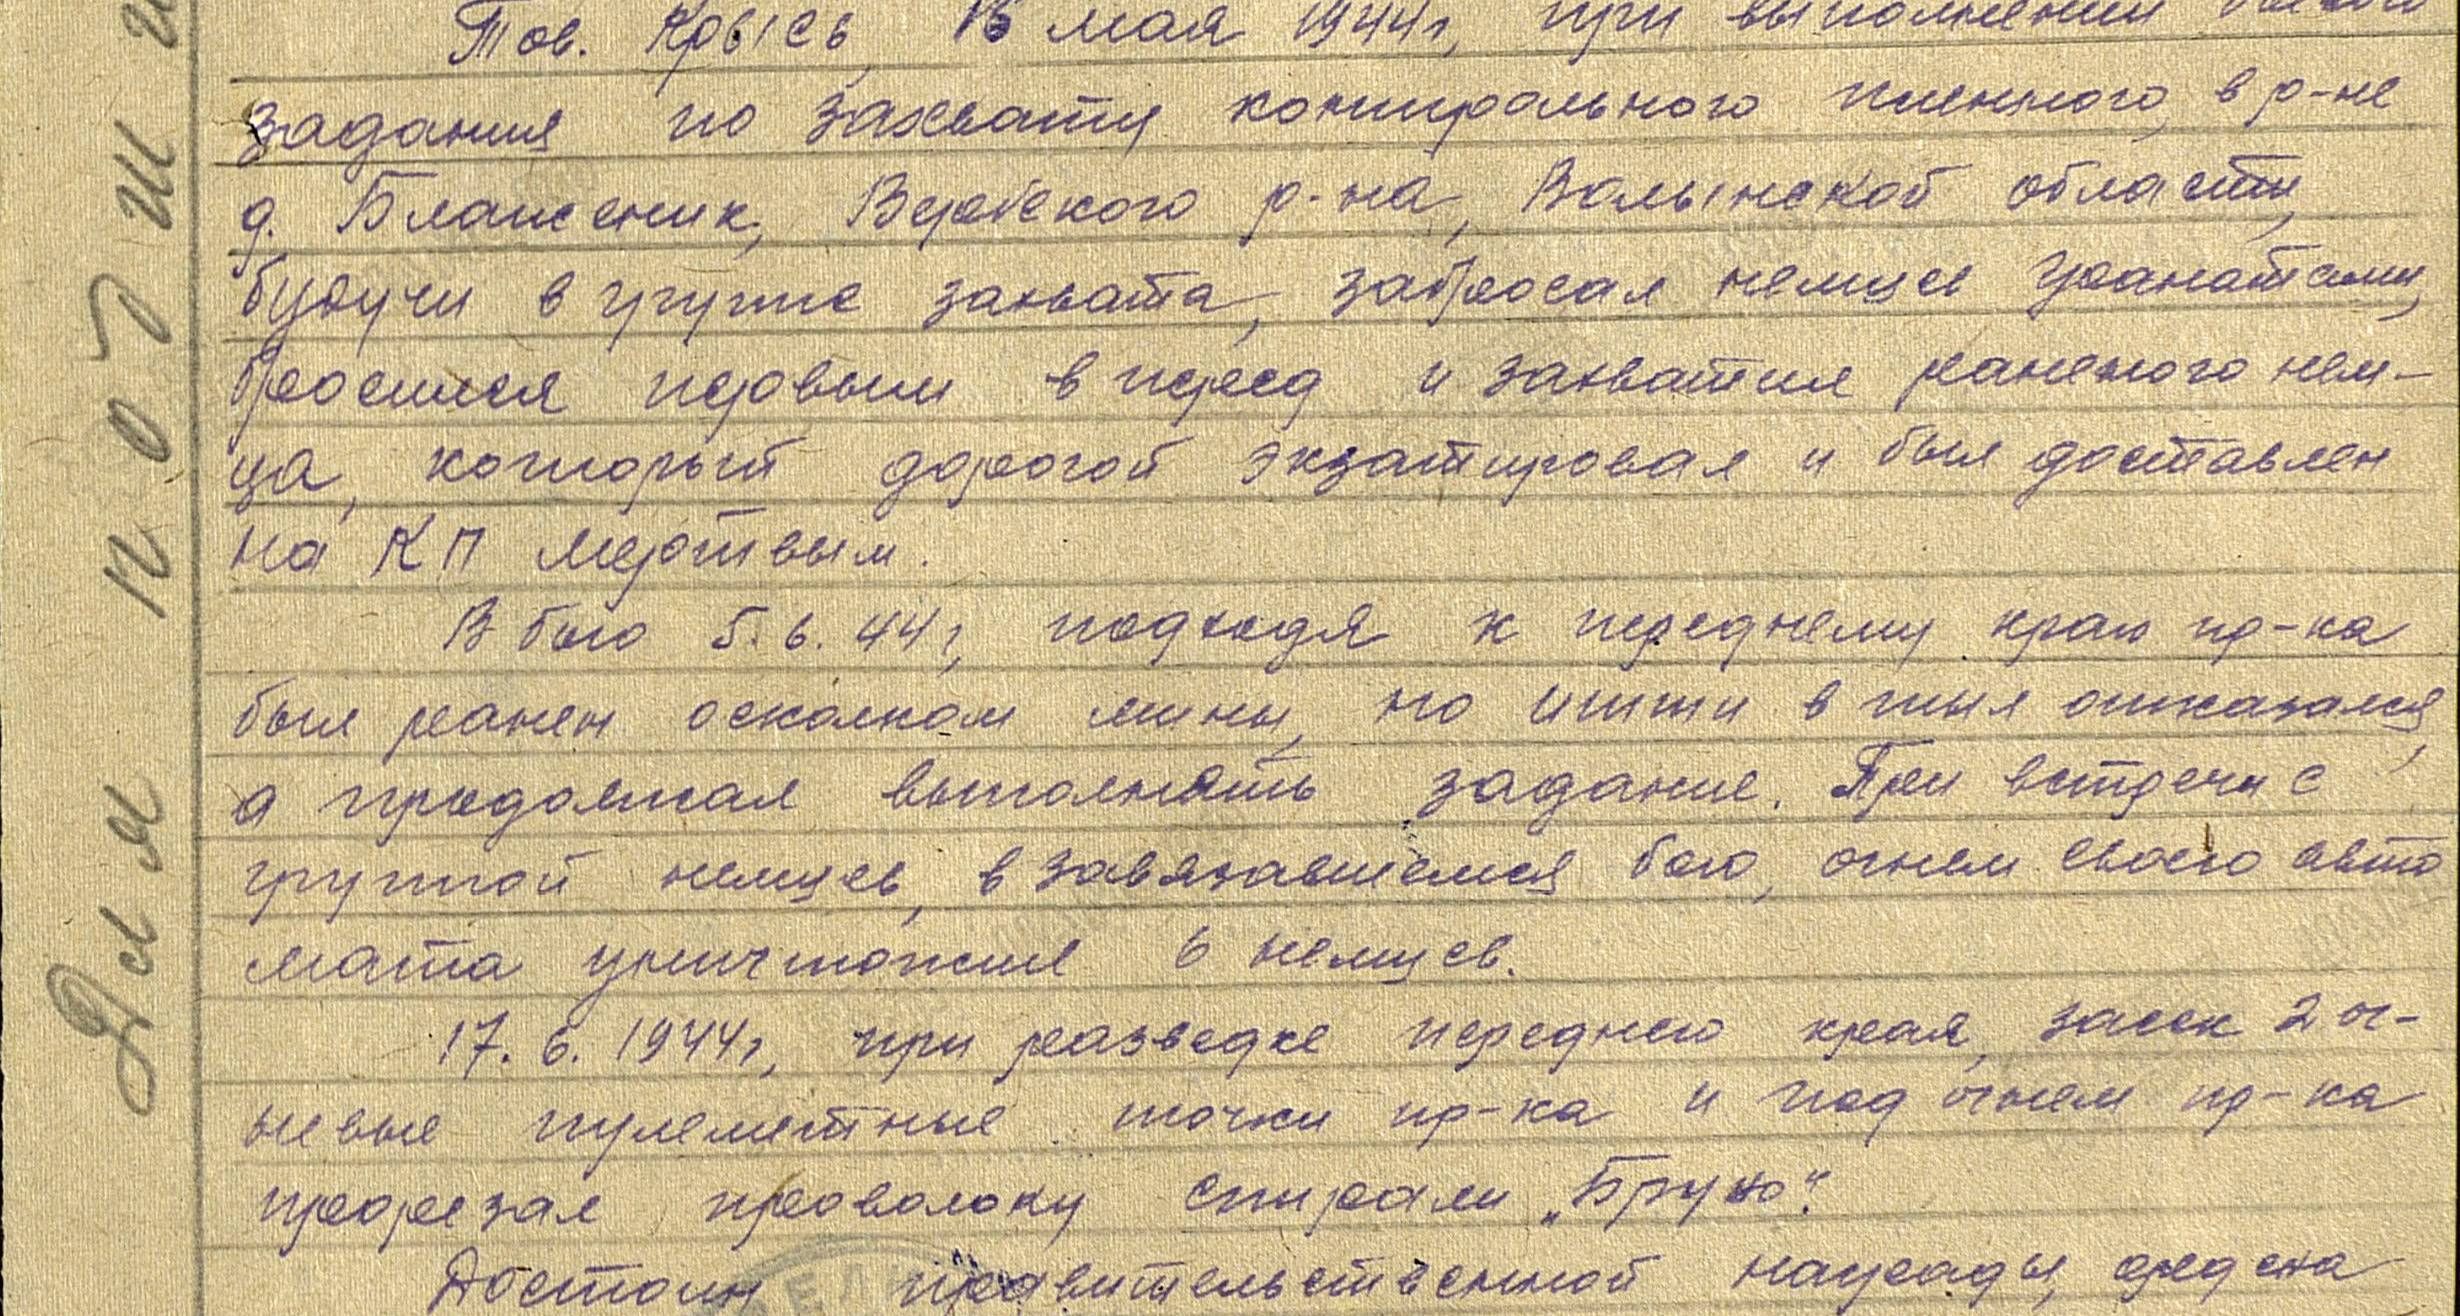 Тов. Крысь, 16 мая 1944г, при выполнении
задания по захвату контрольного пленного, в р-не
д. Блаженик, Вербского р-на, Волынской области,
будучи в группе захвата, забросал немцев гранатами,
бросился первым вперед и захватил раненого нем-
ца, который дорогой экзатировал и был доставлен
на КП мертвым.
В бою 5.6.44г, подходя к переднему краю пр-ка
был ранен осколком мины, но итти в тыл отказался,
а продолжал выполнять задание. При встречи с
группой немцев, в завязавшемся бою, огнем своего авто
мата уничтожил 6 немцев.
17.6.1944г, при разведке переднего края, засек 2 ог-
невые пулеметные точки пр-ка и под огнем пр-ка
прорезал проволоку спирали „Бруно".
Достоин правительственной награды, ордена
Для подши